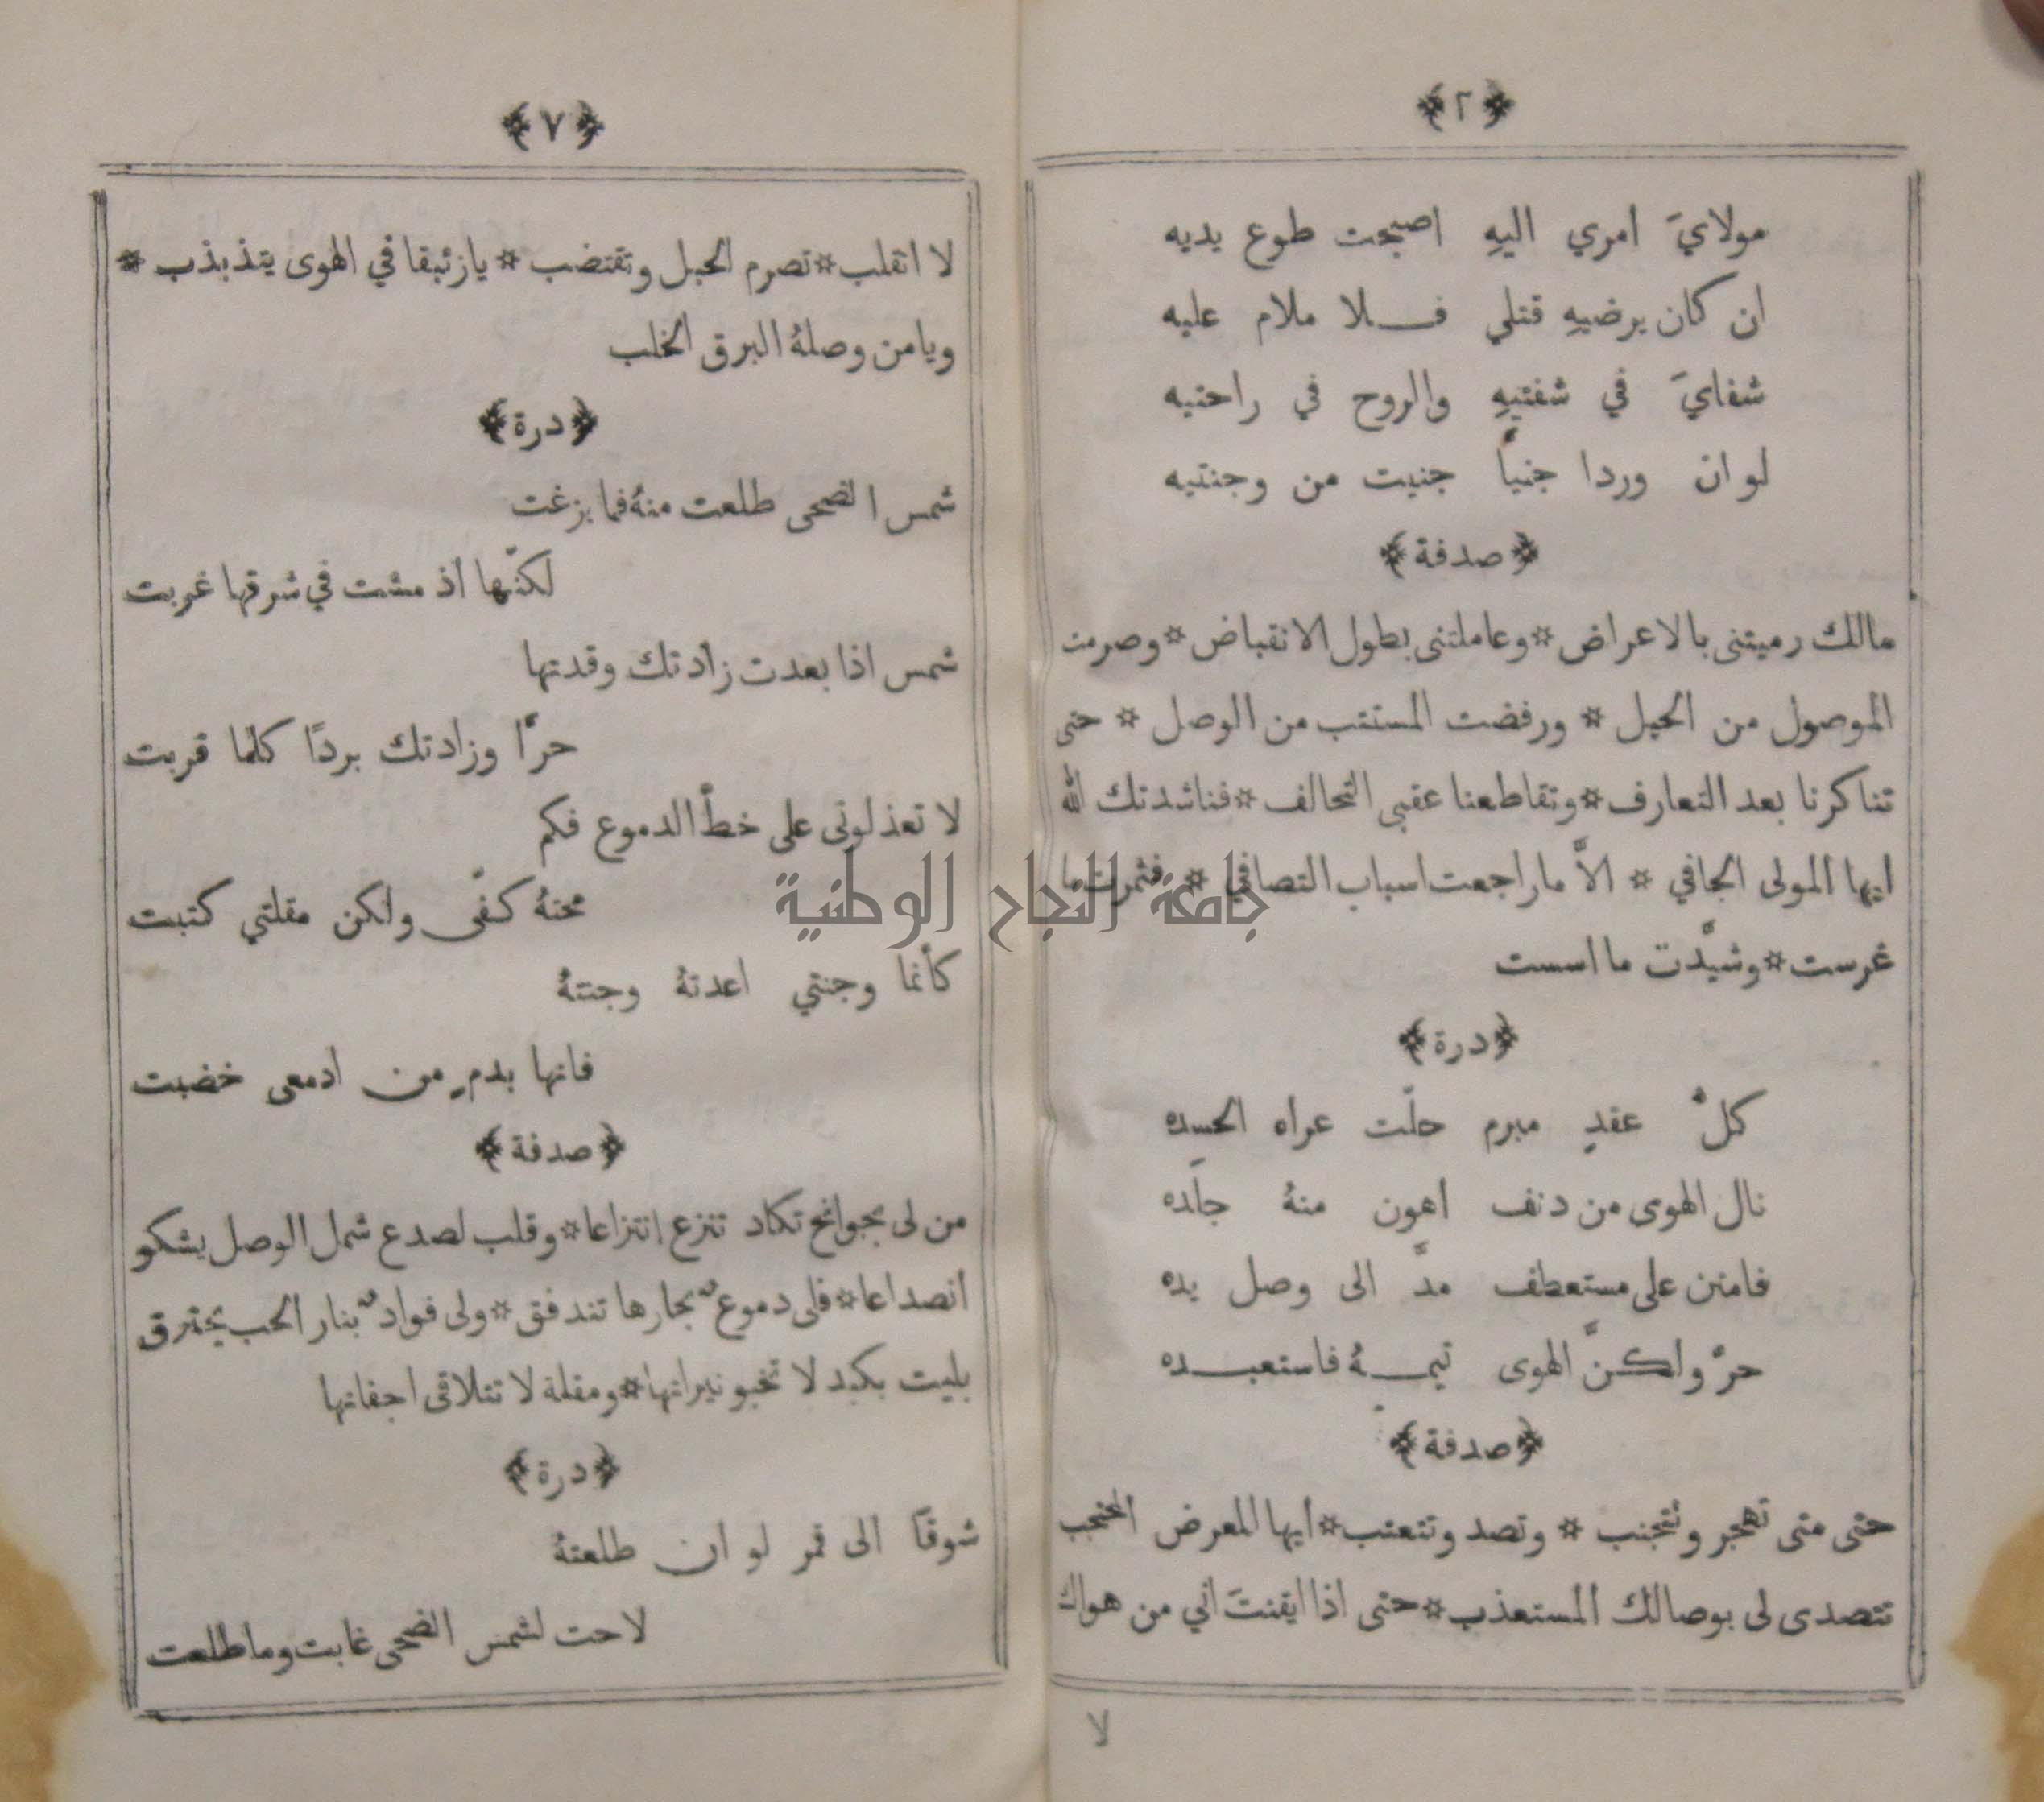 ﴿٢﴾
مولايَ امري اليهِ اصبحت طوع يديه
ان كان يرضيهِ قتلي فــلا ملام عليه
شفايَ في شفتيهِ والروح في راحتيه
لو ان وردا جنياً جنيت من وجنتيه
﴿صدفة﴾
مالك رميتنى بالاعراض * وعاملتنى بطول الانقباض * وصرمت
الموصول من الحبل * ورفضت المستتب من الوصل * حتى
تناكرنا بعد التعارف * وتقاطعنا عقبى التحالف * فناشدتك الله
ايها المولى الجافي * الاَّ ما راجعت اسباب التصافي * فثمرت ما
غرست * وشيَّدت ما اسست
﴿درة﴾
كلُّ عقدٍ مبرم حلّت عراه الحسده
نال الهوى من دنف اهون منهُ جلَده
فامنن على مستعطف مدَّ الى وصل يده
حرٌّ ولكنَّ الهوى تيمــهُ فاستعبــده
﴿صدفة﴾
حتى متى تهجر وتتجنب * وتصد وتتعتب * ايها المعرض المحتجب
تتصدى لى بوصالك المستعذب * حتى اذا ايقنتَ اني من هواك
لا
﴿٧﴾
لا انقلب * تصرم الحبل وتقتضب * يازئبقا في الهوى يتذبذب *
ويامن وصلهُ البرق الخلب
﴿درة﴾
شمس الضحى طلعت منهُ فما بزغت
لكنّها اذ مشت في شرقها غربت
شمس اذا بعدت زادتك وقدتها
حرًّا وزادتك بردًا كلما قربت
لا تعذلونى على خطّ الدموع فكم
محتهُ كفّى ولكن مقلتي كتبت
كأنما وجنتي اعدتهُ وجنتهُ
فانها بدمٍ من ادمعى خضبت
﴿صدفة﴾
من لى بجوانح تكاد تنزع انتزاعا * وقلب لصدع شمل الوصل يشكو
انصداعا * فلى دموعٌ بحارها تندفق * ولى فوادٌ بنار الحب يحترق
بليت بكبد لا تخبو نيرانها * ومقلة لا تتلاقى اجفانها
﴿درة﴾
شوقًا الى قمر لو ان طلعتهُ
لاحت لشمس الضحى غابت وما طلعت
جامعة النجاح الوطنية